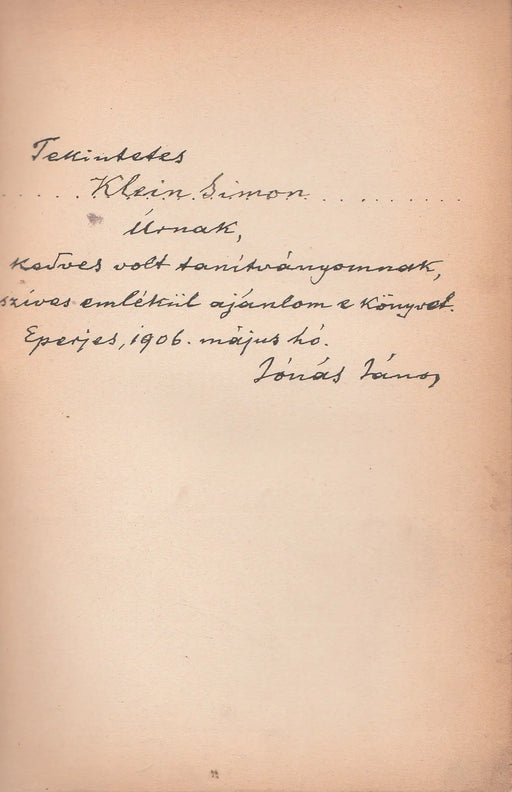 Tekintetes
.....Klein Simon.........
Úrnak,
kedves volt tanítványomnak,
szives emlékül ajánlom e könyvet.
Eperjes, 1906. május hó.
Jónás János